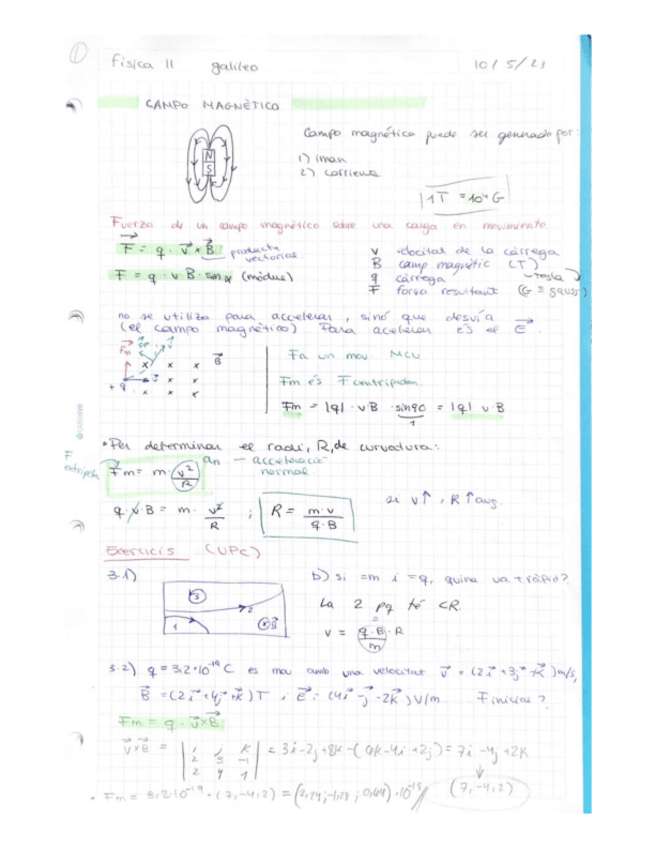 1
Física II galileo 10/5/23
CAMPO MAGNÈTICO
Campo magnético puede ser generado por:
1) iman
2) corriente
N
S
1T = 10⁴ G
Fuerza de un campo magnético sobre una carga en movimiento.
F = q · v × B producte vectorial
F = q · v B · sin α (mòdul)
v velocitat de la càrrega
B camp magnètic (T) tesla
q càrrega
F força resultant (G = gauss)
no se utiliza para accelerar, sinó que desvía
(el campo magnético) Para acelerar es el E.
Fm v B
+q v
Fa un mov. MCU
Fm és F centrípeta
Fm = |q| · v B · sin90 = |q| v B
1
• Per determinar el radi, R, de curvatura:
F centrípeta Fm = m · v²/R an — acceleració normal
q · v · B = m · v²/R ; R = m·v / q·B si v↑, R↑
Exercicis (UPC)
3.1) b) si =m i =q, quina va + ràpid?
3
2
1
B
La 2 pq té
v = q·B/m · R
3.2) q = 3,2·10⁻¹⁹ C es mou amb una velocitat v = (2i + 3j - K) m/s,
B = (2i + 4j + K) T i E = (4i - j - 2K) V/m. F inicial?
Fm = q · v×B
v×B = | i j k 2 3 -1 2 4 1 | = 3i - 2j + 8K - (6k - 4i + 2j) = 7i - 4j + 2K
(7, -4, 2)
• Fm = 3,2·10⁻¹⁹ · (7, -4, 2) = (2,24; -1,28; 0,64)·10⁻¹⁸